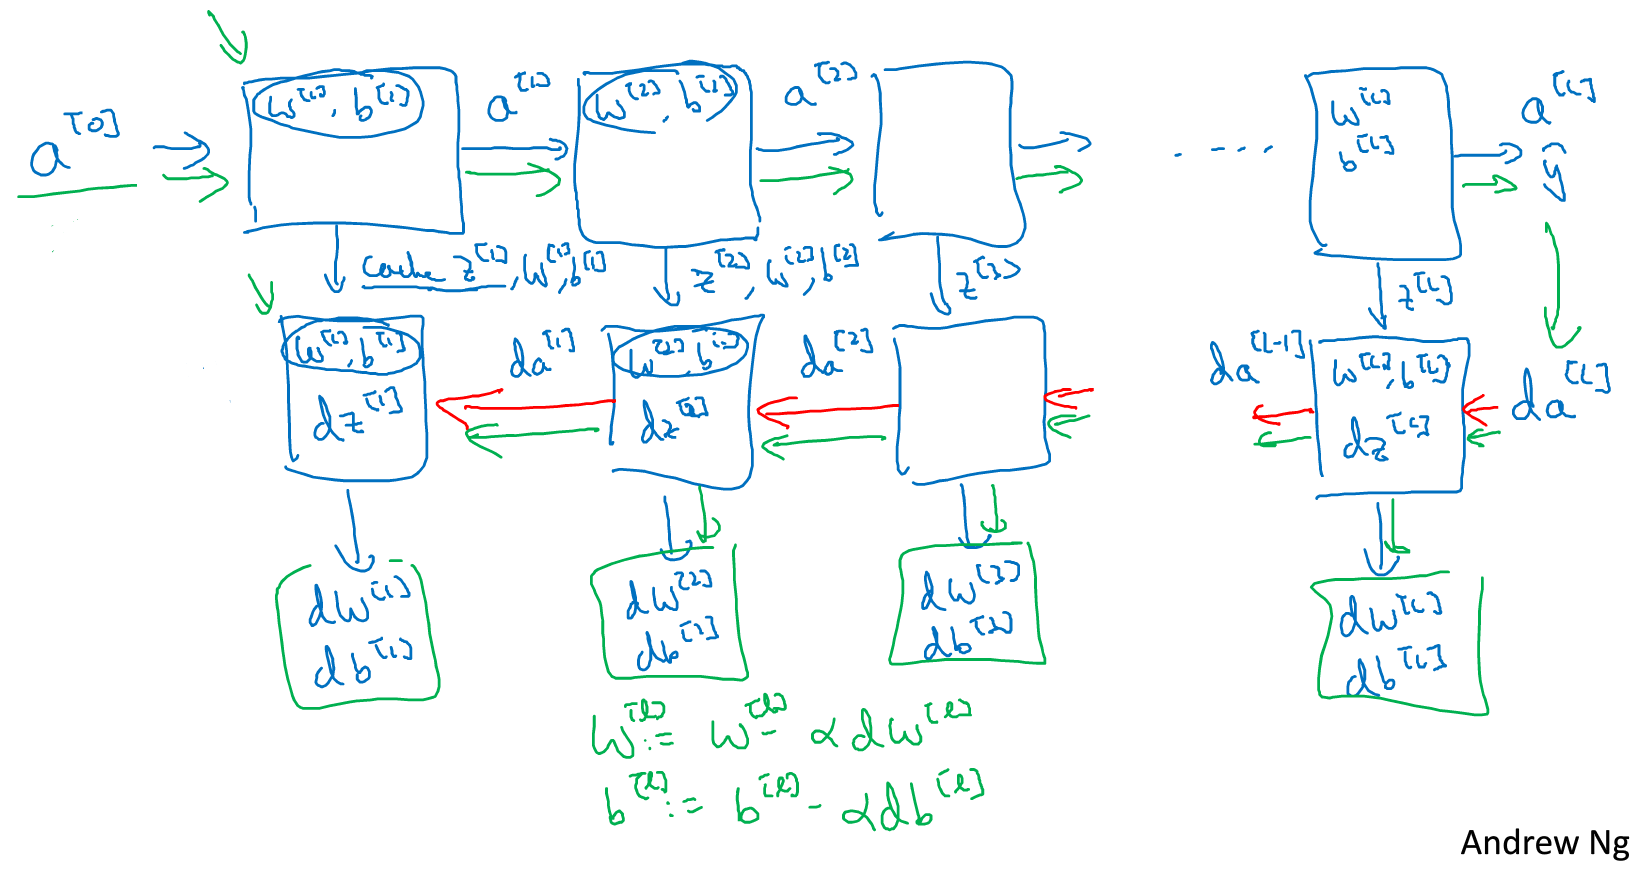 a^[0]
w^[1], b^[1]
a^[1]
w^[2], b^[2]
a^[2]
w^[L]
b^[L]
a^[L]
ŷ
cache z^[1], w^[1], b^[1]
z^[2], w^[2], b^[2]
z^[3]
z^[L]
w^[1], b^[1]
dz^[1]
da^[1]
w^[2], b^[2]
dz^[2]
da^[2]
da^[L-1]
w^[L], b^[L]
dz^[L]
da^[L]
dw^[1]
db^[1]
dw^[2]
db^[2]
dw^[3]
db^[3]
dw^[L]
db^[L]
w^[l] := w^[l] - α dw^[l]
b^[l] := b^[l] - α db^[l]
Andrew Ng